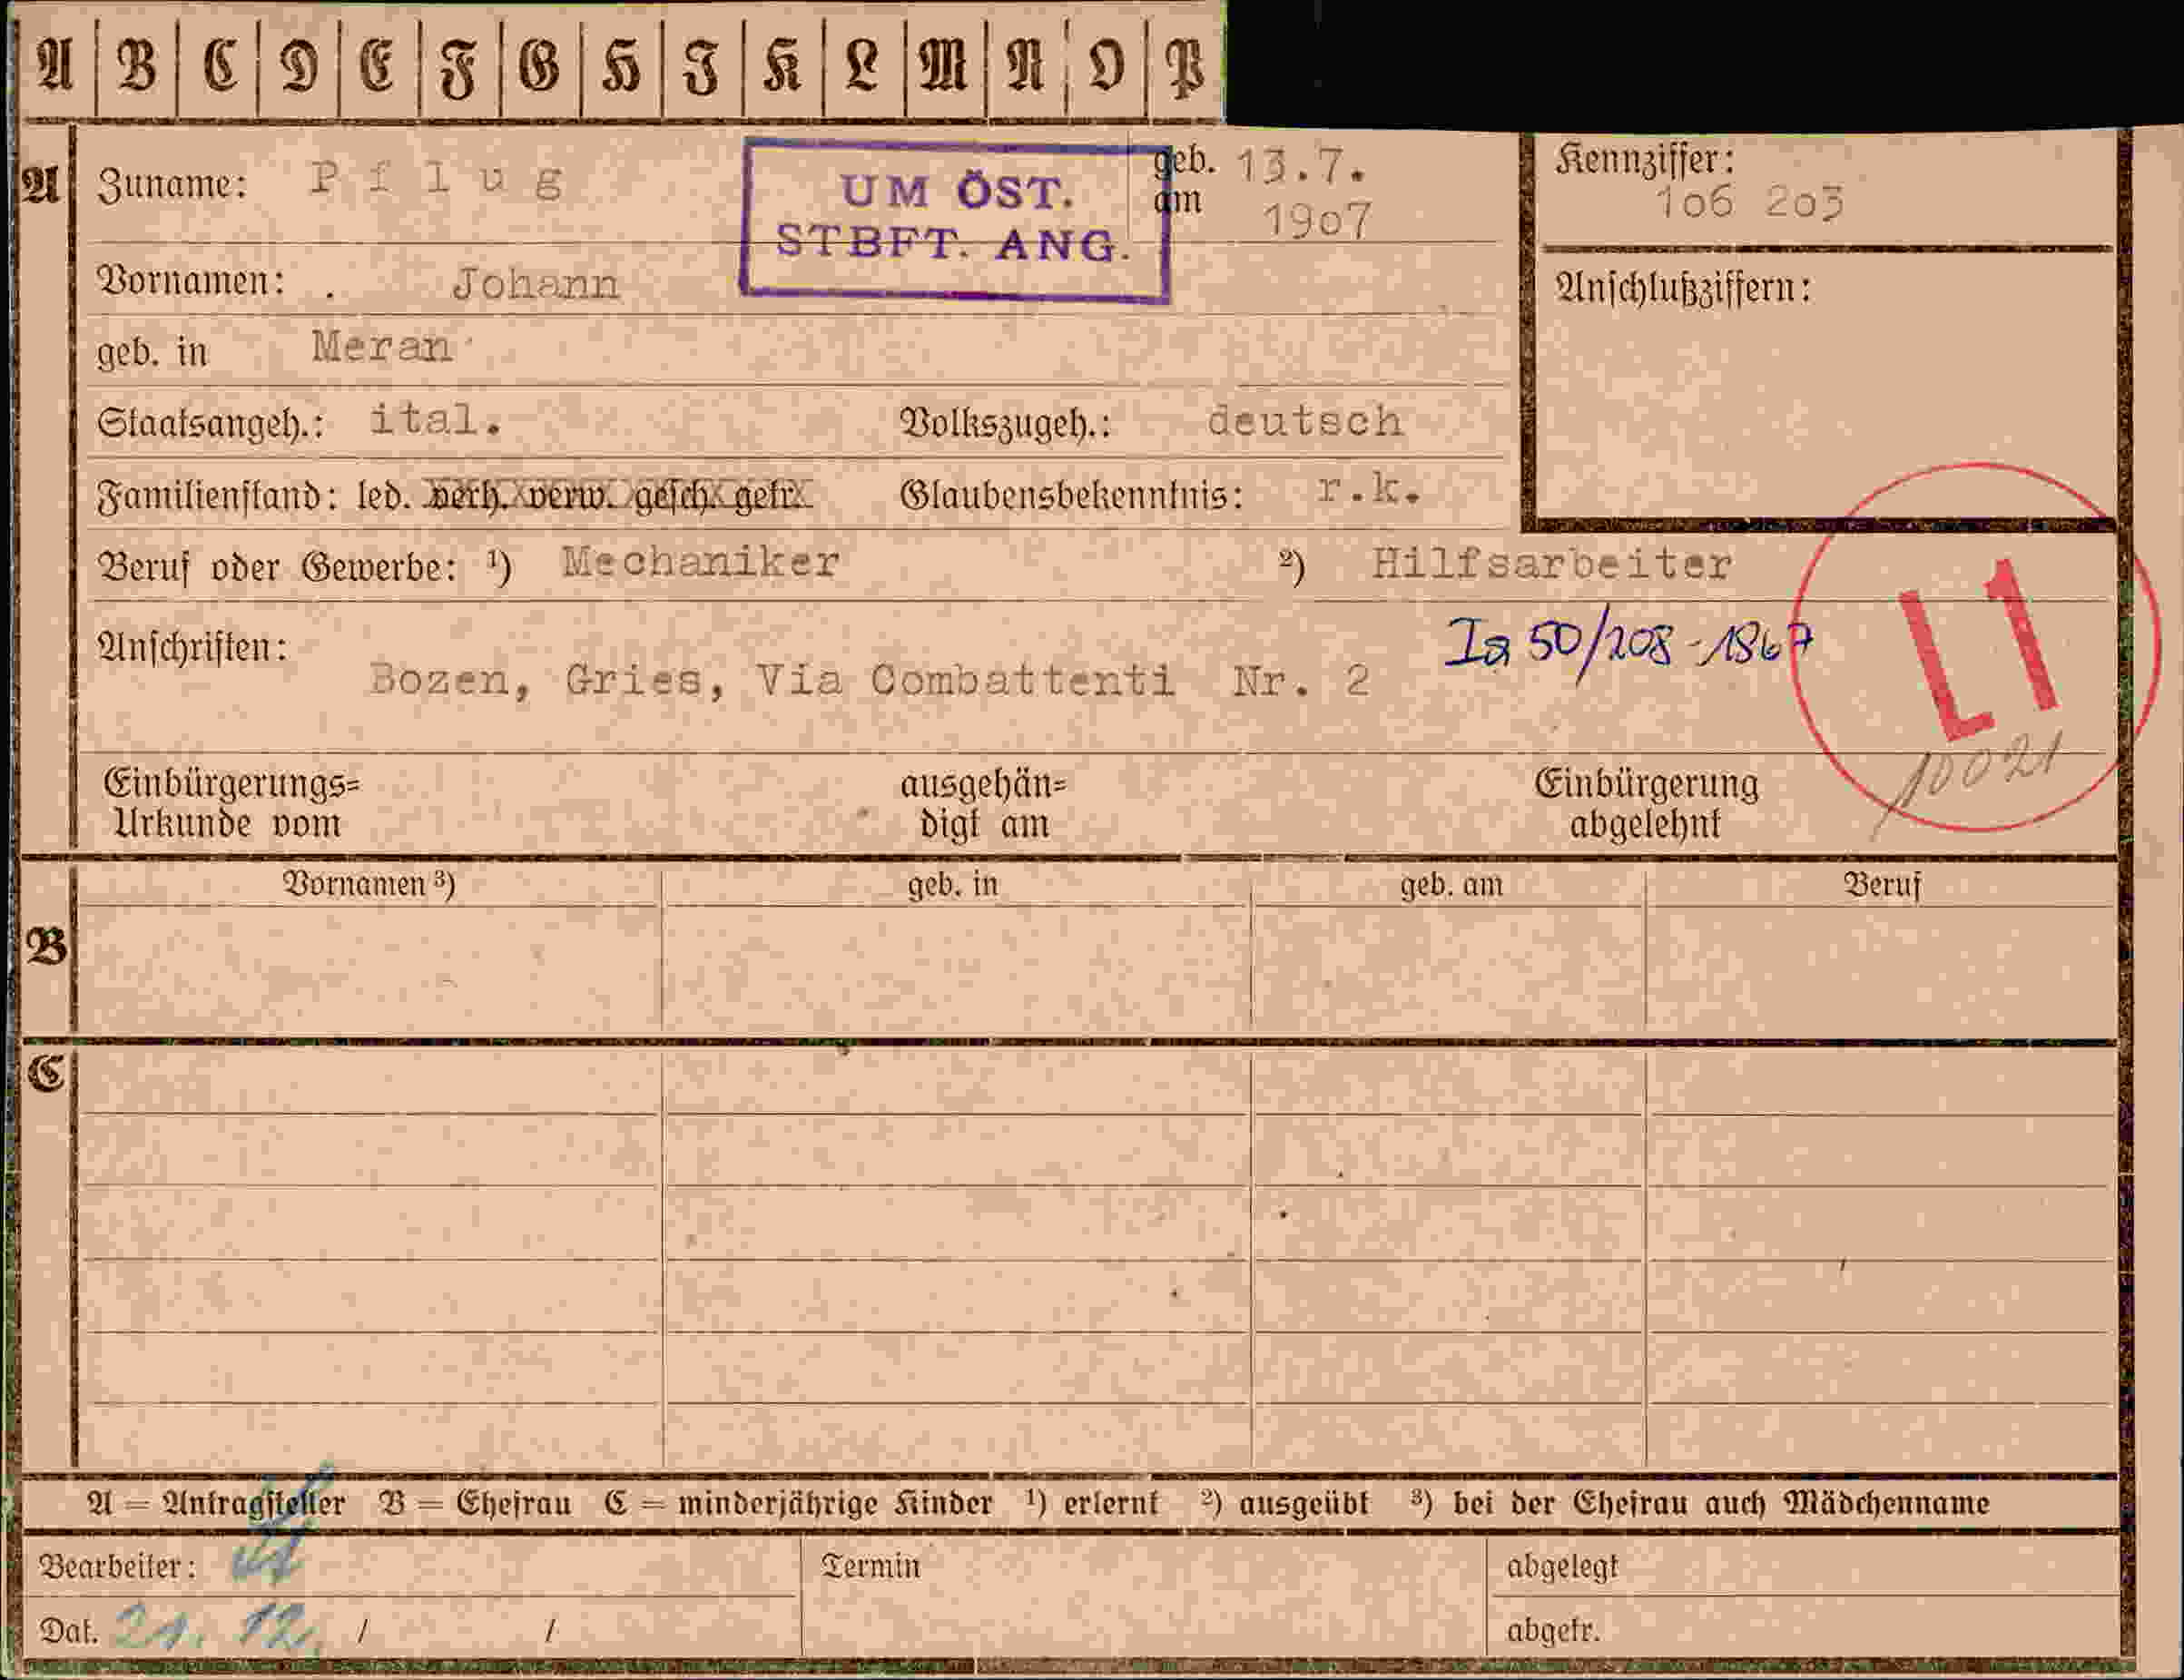 A B C D E F G H I K L M N O P
A Zuname: Pflug
UM ÖST.
STBFT. ANG.
geb. am 13.7.
1907
Kennziffer:
106 203
Vornamen: . Johann
Anschlußziffern:
geb. in Meran
Staatsangeh.: ital. Volkszugeh.: deutsch
Familienstand: led. verh. verw. gesch. getr. Glaubensbekenntnis: r.k.
Beruf oder Gewerbe: ¹) Mechaniker ²) Hilfsarbeiter
Ia 50/208-1867
L1
Anschriften:
Bozen, Gries, Via Combattenti Nr. 2
10021
Einbürgerungs=
Urkunde vom
ausgehän=
digt am
Einbürgerung
abgelehnt
Vornamen ³) geb. in geb. am Beruf
B
C
A = Antragsteller B = Ehefrau C = minderjährige Kinder ¹) erlernt ²) ausgeübt ³) bei der Ehefrau auch Mädchenname
Bearbeiter: Termin abgelegt
Dat. 21. 12. / / abgetr.